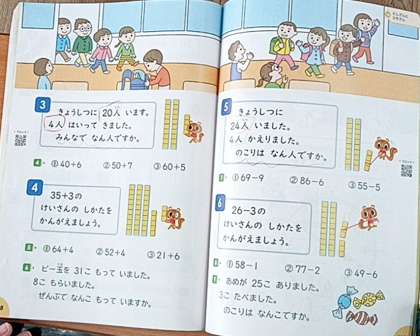 3
きょうしつに 20人 います。
4人 はいって きました。
みんなで なん人ですか。
4 ①40+6 ②50+7 ③60+5
4
35+3の
けいさんの しかたを
かんがえましょう。
5 ①64+4 ②52+4 ③21+6
6 ビー玉を 31こ もって いました。
8こ もらいました。
ぜんぶで なんこ もって いますか。
5
きょうしつに
24人 いました。
4人 かえりました。
のこりは なん人ですか。
7 ①69-9 ②86-6 ③55-5
6
26-3の
けいさんの しかたを
かんがえましょう。
8 ①58-1 ②77-2 ③49-6
9 あめが 25こ ありました。
3こ たべました。
のこりは なんこですか。